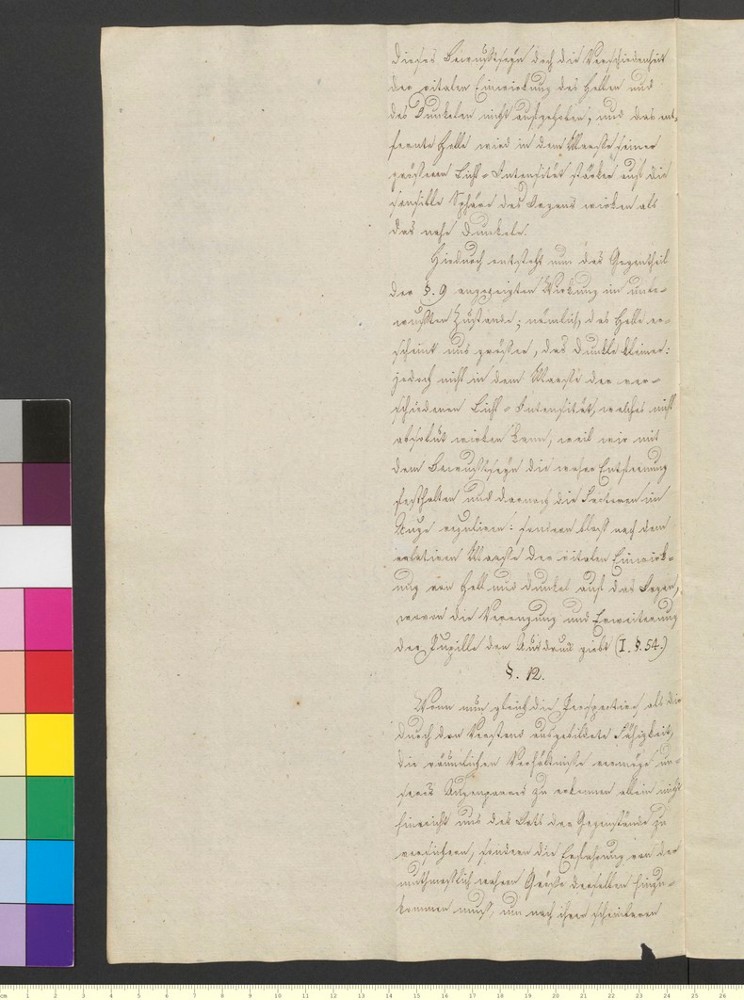 dieses Bewußtseyn doch die Verschiedenheit
der vitalen Einwirkung des Hellen und
des Dunkelen nicht aufgehoben, und das ent-
fernte Helle wird in dem Maaße seiner
größeren Licht-Intensität stärker auf die
sensible Sphäre des Organs wirken als
das nahe Dunkele.
Hiedurch entsteht nun das Gegentheil
der §. 9 angezeigten Wirkung im unbe-
wußten Zustande; nämlich, das Helle er-
scheint uns größer, das Dunkle kleiner:
jedoch nicht in dem Maaße der ver-
schiedenen Licht-Intensität, welches nicht
absolut wirken kann, weil wir mit
dem Bewußtseyn die wahre Entfernung
festhalten und darnach die
Auge reguliren: sondern bloß nach dem
relativen Maaße der vitalen Einwirk-
ung von Hell und dunkel auf das Organ,
wovon die Verengung und Erweiterung
der Pupille den Ausdruck giebt (I. §. 54.)
§. 12.
Wenn nun gleich die Perspective, als die
durch den Verstand ausgebildete Fähigkeit,
die räumlichen Verhältniße vermöge un-
seres Augenpaares zu erkennen allein nicht
hinreicht uns des Orts der Gegenstände zu
versichern, sondern die Erfahrung von der
muthmaßlich wahren Größe derselben hinzu-
kommen muß, um nach ihrer scheinbaren